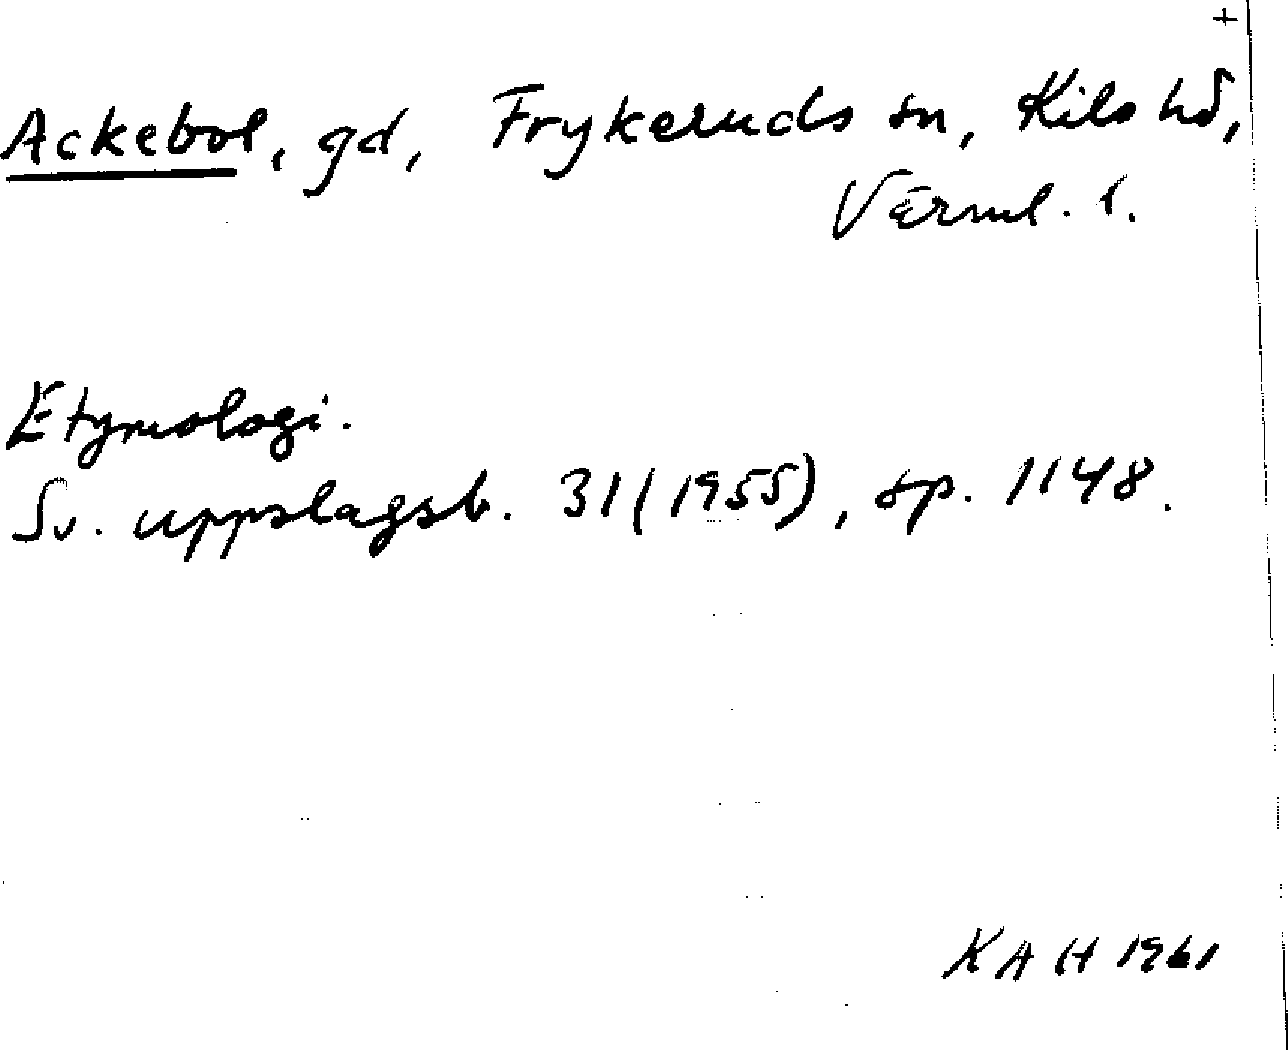 +
Ackebol, gd, Frykeruds sn, Kils hd,
Värml. l.
Etymologi.
Sv. uppslagsb. 31 (1955), sp. 1148.
KAH 1961